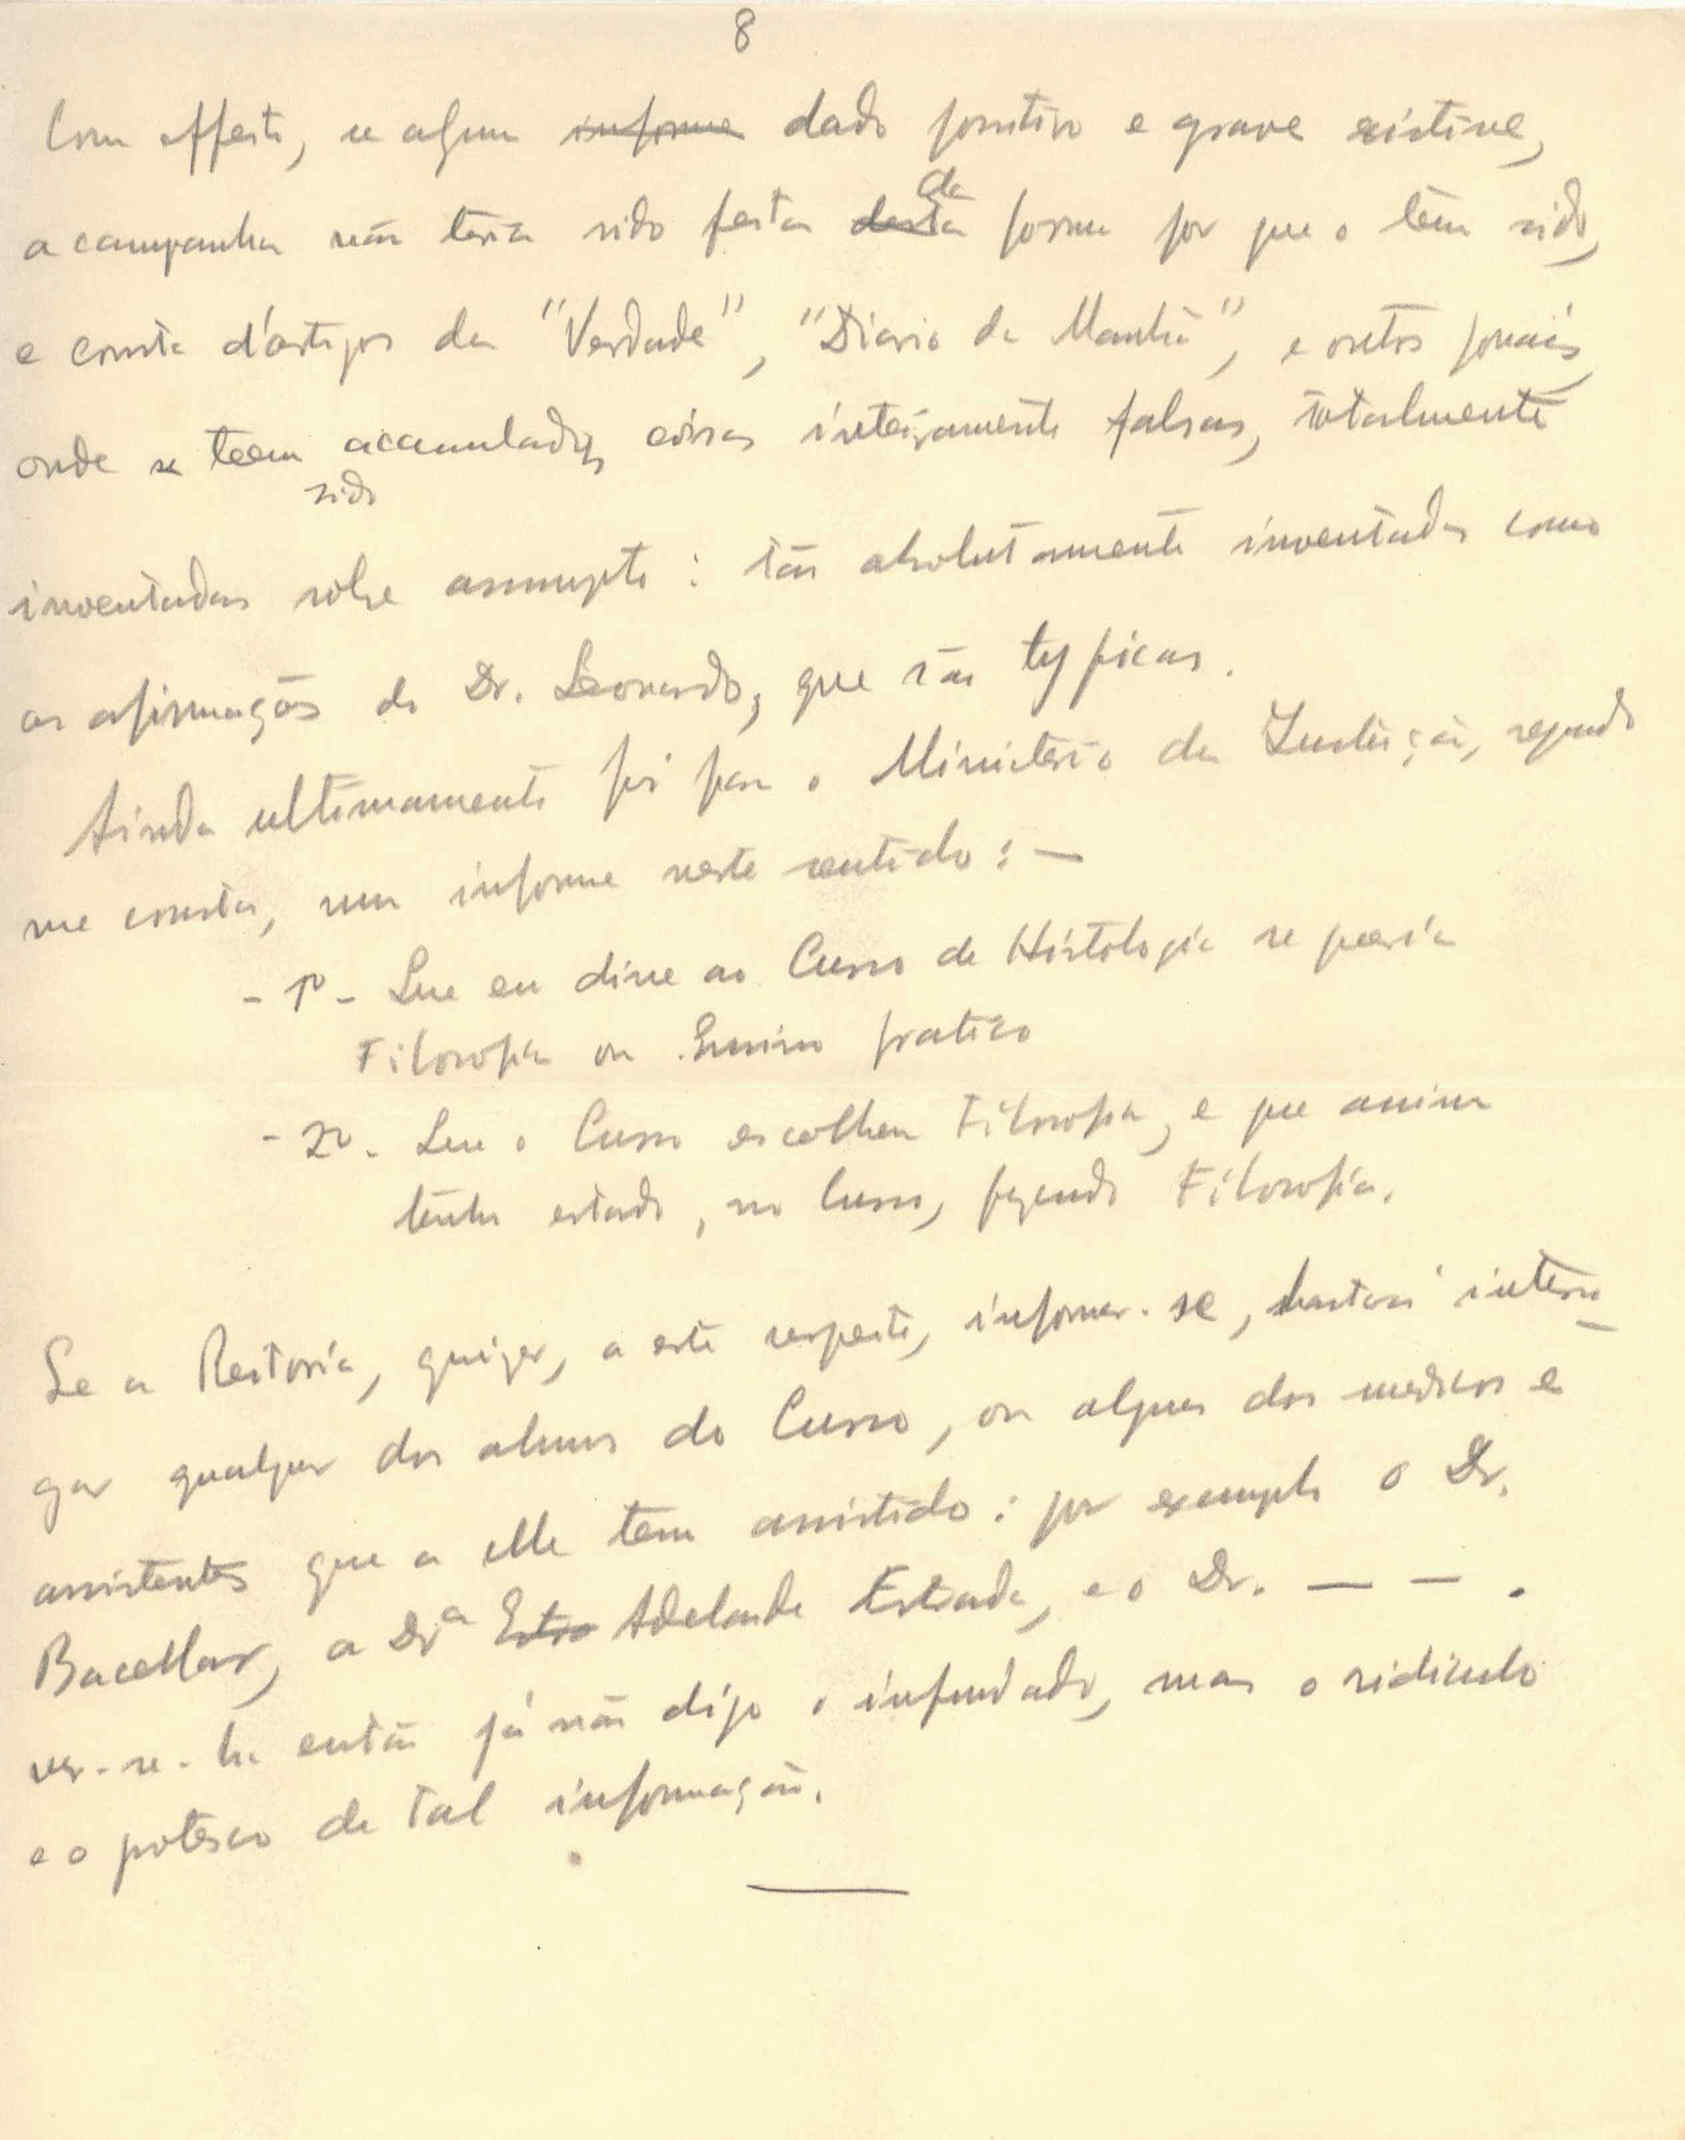 8
Com effeito, se algum informe dado positivo e grave existisse,
a campanha não teria sido feita desta da forma por que o tem sido,
e consta d'artigos da "Verdade", "Diario da Manhã", e outros jornais,
onde se teem sido accumulado coisas inteiramente falsas, totalmente
inventadas sobre assumpto: tão absolutamente inventadas como
as afirmações do Dr. Leonardo, que são typicas.
Ainda ultimamente foi para o Ministerio da Instrução, segundo
me consta, um informe neste sentido: —
- 1º - Que eu disse ao Curso de Histologia se queria
Filosofia ou Ensino pratico
- 2º - Que o Curso escolheu Filosofia, e que assim
tenho estado, no Curso, fazendo Filosofia.
Se a Reitoria, quizer, a este respeito, informar-se, bastará interro-
gar qualquer dos alunos do Curso, ou alguns dos medicos e
assistentes que a elle tem assistido: por exemplo o Dr.
Bacellar, a Drª Estra Adelaide Estrada, e o Dr. — — .
ver-se-ha então já não digo o infundado, mas o ridiculo
e o grotesco de tal informação.